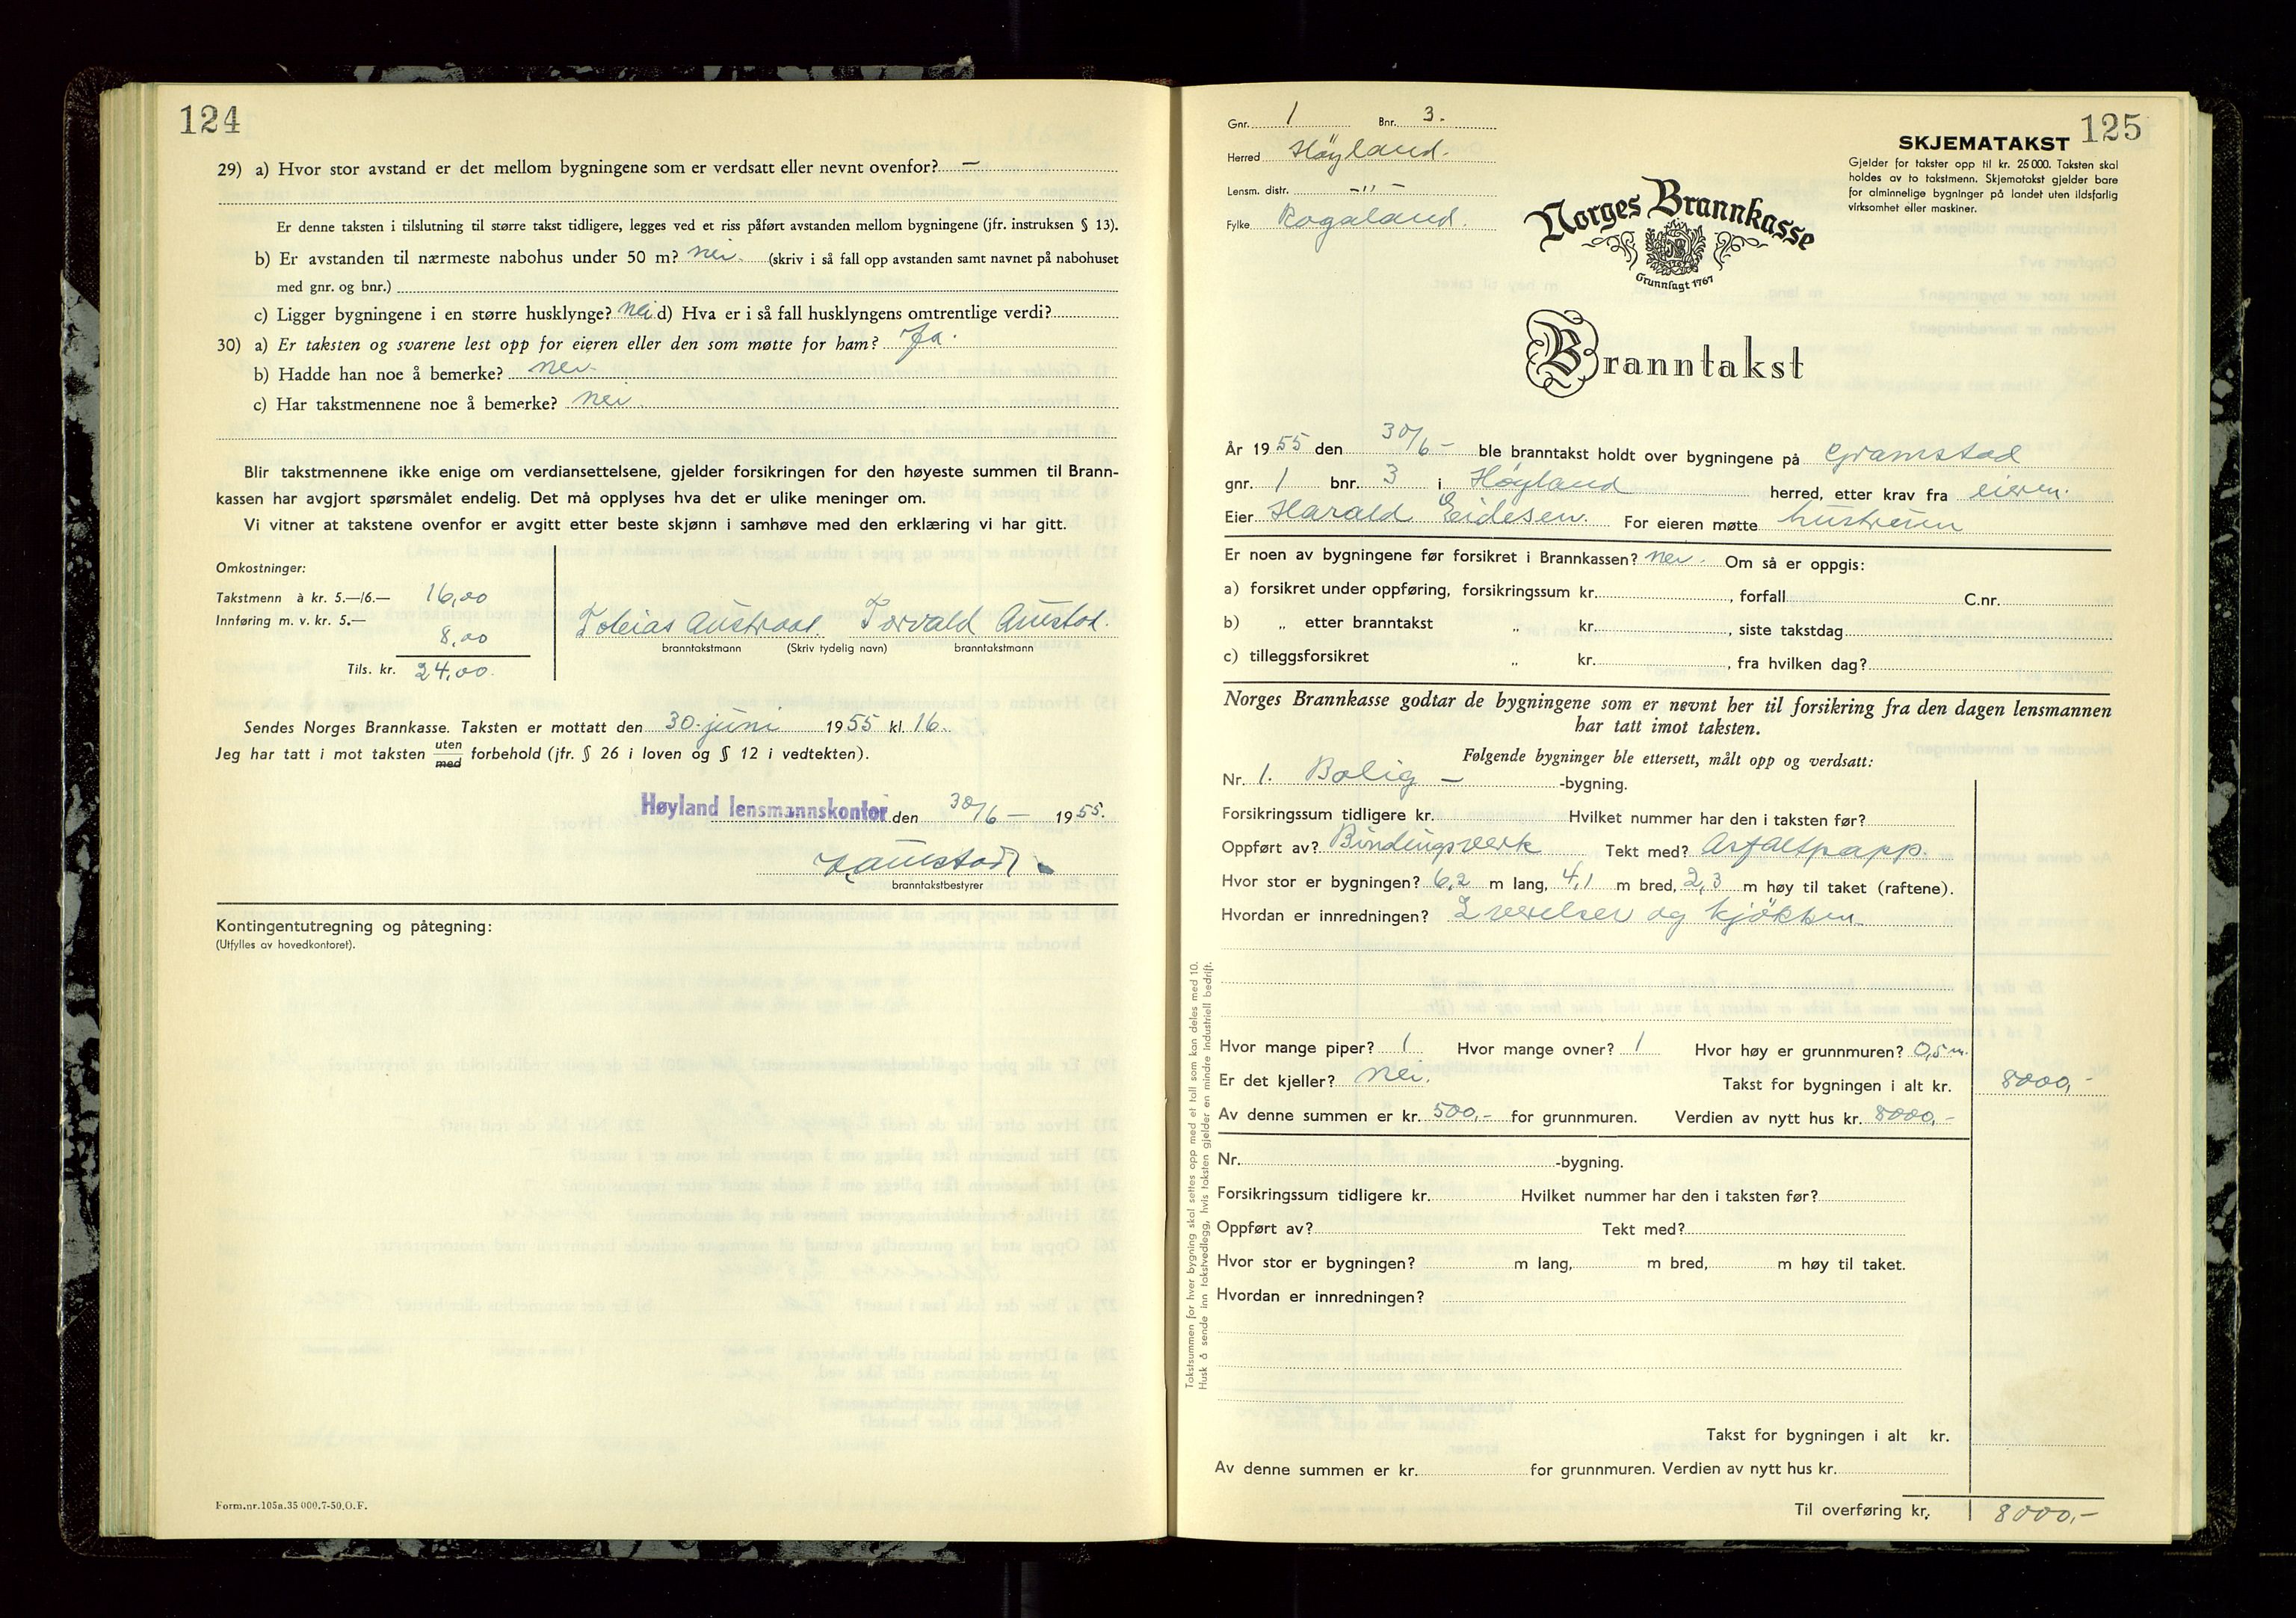 124
29) a) Hvor stor avstand er det mellom bygningene som er verdsatt eller nevnt ovenfor? —
Er denne taksten i tilslutning til større takst tidligere, legges ved et riss påført avstanden mellom bygningene (jfr. instruksen § 13).
b) Er avstanden til nærmeste nabohus under 50 m? nei. (skriv i så fall opp avstanden samt navnet på nabohuset
med gnr. og bnr.)
c) Ligger bygningene i en større husklynge? nei d) Hva er i så fall husklyngens omtrentlige verdi?
30) a) Er taksten og svarene lest opp for eieren eller den som møtte for ham? Ja.
b) Hadde han noe å bemerke? nei.
c) Har takstmennene noe å bemerke? nei.
Blir takstmennene ikke enige om verdiansettelsene, gjelder forsikringen for den høyeste summen til Brann-
kassen har avgjort spørsmålet endelig. Det må opplyses hva det er ulike meninger om.
Vi vitner at takstene ovenfor er avgitt etter beste skjønn i samhøve med den erklæring vi har gitt.
Omkostninger:
Takstmenn à kr. 5.—/6.— 16,00
Innføring m. v. kr. 5.—
8,00
Tils. kr. 24,00.
Tobias Austraat. Torvald Austad.
branntakstmann (Skriv tydelig navn) branntakstmann
Sendes Norges Brannkasse. Taksten er mottatt den 30. juni 1955 kl. 16.
Jeg har tatt i mot taksten uten/med forbehold (jfr. § 26 i loven og § 12 i vedtekten).
Høyland lensmannskontor den 30/6 — 1955.
branntakstbestyrer
Kontingentutregning og påtegning:
(Utfylles av hovedkontoret).
Form.nr.105a.35 000.7-50.O.F.
125
Gnr. 1 Bnr. 3.
Herred Høyland.
Lensm. distr. —„—
Fylke Rogaland.
SKJEMATAKST
Gjelder for takster opp til kr. 25 000. Taksten skal
holdes av to takstmenn. Skjematakst gjelder bare
for alminnelige bygninger på landet uten ildsfarlig
virksomhet eller maskiner.
Norges Brannkasse
Grunnlagt 1767
Branntakst
År 1955 den 30/6 — ble branntakst holdt over bygningene på Gramstad
gnr. 1 bnr. 3 i Høyland herred, etter krav fra eieren.
Eier Harald Eidesen. For eieren møtte hustruen
Er noen av bygningene før forsikret i Brannkassen? nei. Om så er oppgis:
a) forsikret under oppføring, forsikringssum kr. , forfall C.nr.
b) „ etter branntakst „ kr. , siste takstdag
c) tilleggsforsikret „ kr. , fra hvilken dag?
Norges Brannkasse godtar de bygningene som er nevnt her til forsikring fra den dagen lensmannen
har tatt imot taksten.
Følgende bygninger ble ettersett, målt opp og verdsatt:
Nr. 1. Bolig — -bygning.
Forsikringssum tidligere kr. Hvilket nummer har den i taksten før?
Oppført av? Bindingsverk Tekt med? Asfaltpapp.
Hvor stor er bygningen? 6,2 m lang, 4,1 m bred, 2,3 m høy til taket (raftene).
Hvordan er innredningen? 2 værelser og kjøkken
Hvor mange piper? 1 Hvor mange ovner? 1 Hvor høy er grunnmuren? 0,5 m.
Er det kjeller? nei. Takst for bygningen i alt kr. 8000,-
Av denne summen er kr. 500,- for grunnmuren. Verdien av nytt hus kr. 8000,-
Nr. -bygning.
Forsikringssum tidligere kr. Hvilket nummer har den i taksten før?
Oppført av? Tekt med?
Hvor stor er bygningen? m lang, m bred, m høy til taket.
Hvordan er innredningen?
Takst for bygningen i alt kr.
Av denne summen er kr. for grunnmuren. Verdien av nytt hus kr.
Til overføring kr. 8000,-
Takstsummen for hver bygning skal settes opp med et tall som kan deles med 10.
Husk å sende inn takstvedlegg, hvis taksten gjelder en mindre industriell bedrift.